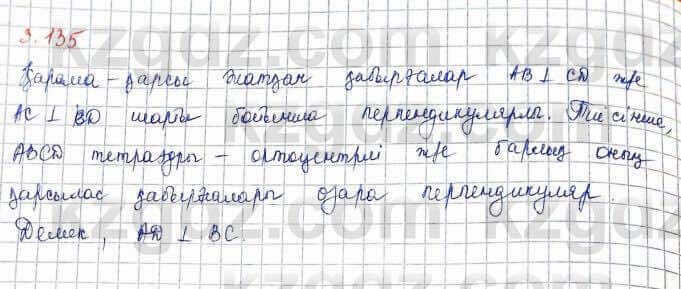 3.135
Қарама - қарсы жатқан қабырғалар AB ⊥ CD және
AC ⊥ BD шарты бойынша перпендикулярлы. Тиісінше,
ABCD тетраэдры - ортоцентрлі және барлық оның
қарсылас қабырғалары өзара перпендикуляр.
Демек, AD ⊥ BC.
kzgdz.com